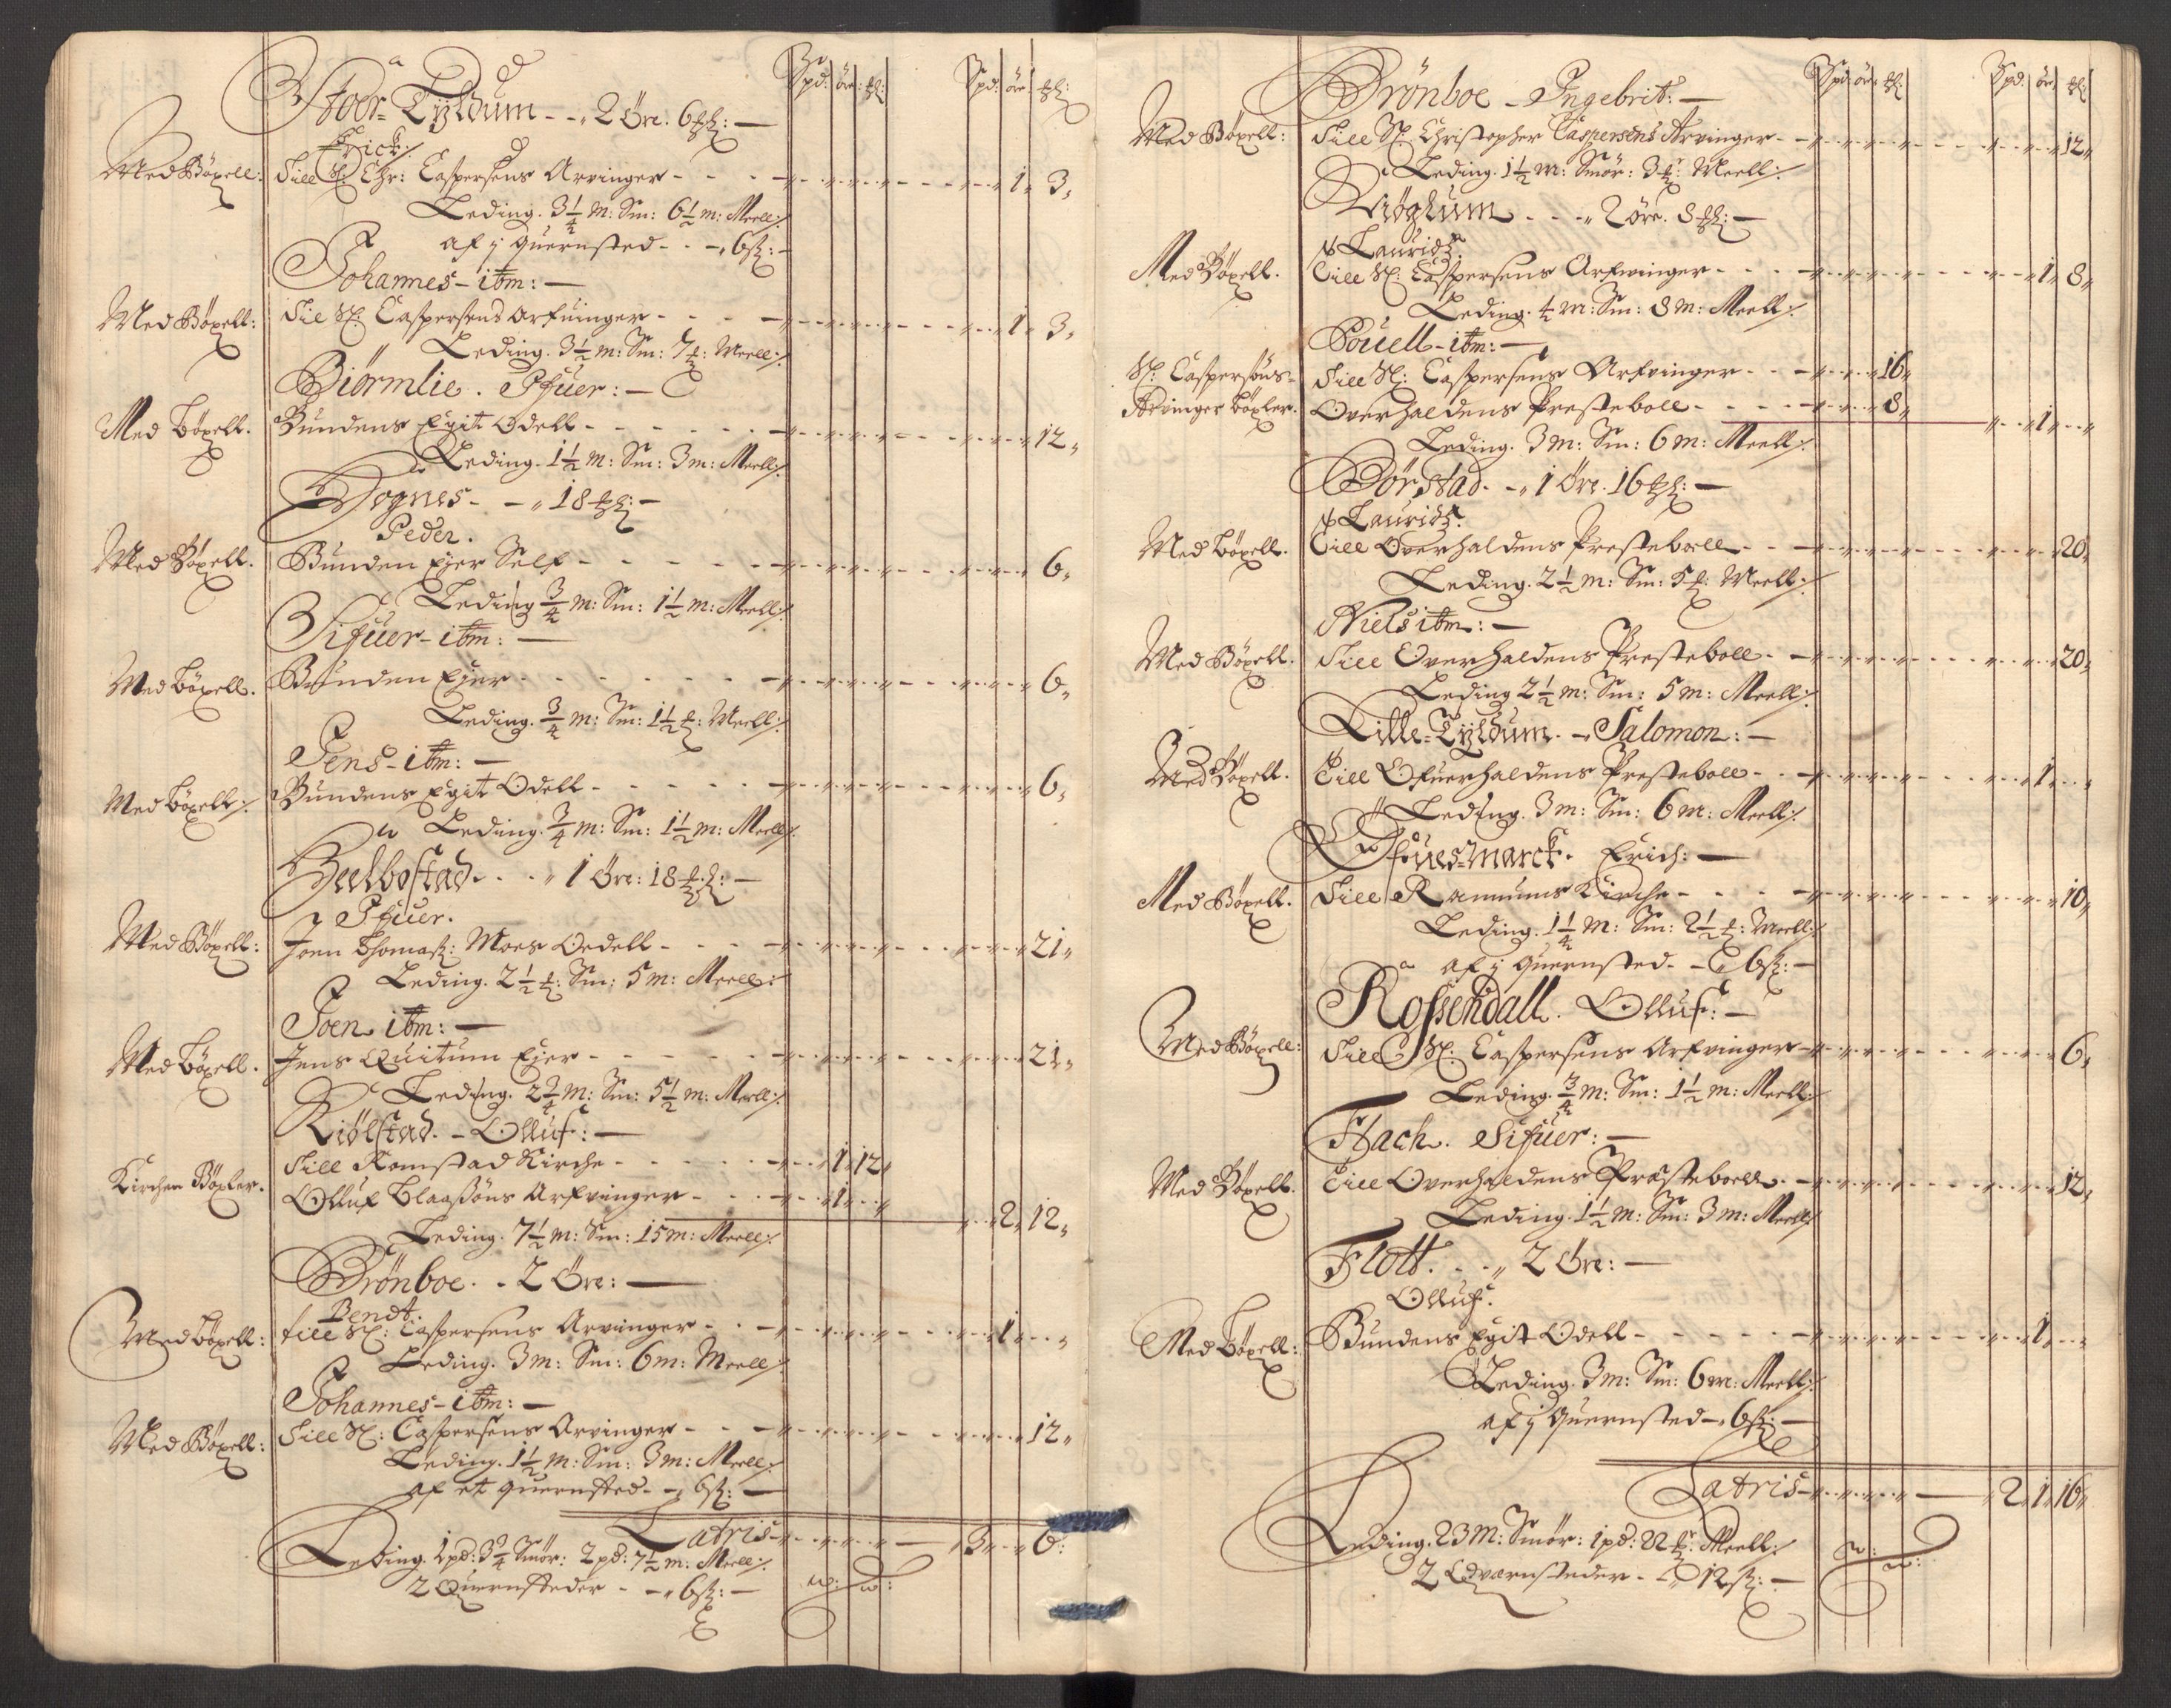 Spd: öre: ₰:  Spd: öre ₰:
Stoer-Tyldum - - „ 2 Öre. 6 ₰: —
Erick:
Med Böxell: Till Sl: Chr: Caspersens Arvinger - - - 1„ 3„
Leding. 3 1/4 m: Sm: 6 1/2 m: Meell:
af j quernsted - - „ 6 ß: —
Johannes - itm: —
Med Böxell: Till Sl: Caspersens Arfuinger - - - 1„ 3„
Leding. 3 1/2 m: Sm: 7 ℔: Meell:
Biörmlie. Ifuer: —
Med Böxell. Bundens Egit Odell - - - 12„
Leding. 1 1/2 m: Sm: 3 m: Meell:
Hognes - - „ 18 ₰: —
Peder.
Med Böxell. Bunden Ejer Self - - - 6„
Leding 3/4 m: Sm: 1 1/2 m: Meell:
Sifuer - itm: —
Med Böxell. Bunden Ejer - - - 6„
Leding. 3/4 m: Sm: 1 1/2 ℔: Meell:
Jens - itm: —
Med Böxell: Bundens Egit Odell - - - 6„
Leding. 3/4 m: Sm: 1 1/2 m: Meell:
Helbostad - - „ 1 Öre: 18 ₰: —
Ifuer.
Med Böxell: Joen Thomaß: Moes Oedell - - - 21„
Leding. 2 1/2 ℔: Sm: 5 m: Meell:
Joen itm: —
Med Böxell. Jens Quitum Ejer - - - 21„
Leding. 2 3/4 m: Sm: 5 1/2 m: Meell:
Kiölstad. - Olluf: —
Kirchen Böxler. Till Romstad Kirche - - - 1„ 12„
Olluf Blaasöns Arfvinger - - - 1„ - - 2„ 12„
Leding. 7 1/2 m: Sm: 15 m: Meell:
Brönboe. - 2 Öre: —
Bendt.
Med Böxell: till Sl: Caspersens Arvinger - - - 1„ - „
Leding. 3 m: Sm: 6 m: Meell
Johannes - itm: —
Med Böxell: Till Sl: Caspersens Arvinger - - - 12„
Leding. 1 1/2 m: Sm: 3 m: Meell:
af et quernsted - - „ 6 ß: —
Latris - - - 3„ - „ 6:
Leding. 1 pd: 3 3/4 Smör: 2 pd: 7 1/2 m: Meell:
2 Quernsteder - - „ 6 ß: —
Spd: öre ₰:  Spd: öre ₰:
Brönboe - Ingebrit: —
Med Böxell: Till Sl: Christopher Caspersens Arvinger - - 12„
Leding. 1 1/2 m: Smör: 3 ℔: Meell:
Riøgdum - - - „ 2 öre. 8 ₰: —
Lauridz.
Med Böxell. Till Sl: Caspersens Arfwinger - - - 1„ 8„
Leding. 4 m: Sm: 8 m: Meell:
Pouell - itm: —
Sl: Caspersöns - Till Sl: Caspersens Arfvinger - - 16„
Arvinger böxler. Overhaldens Presteboll - - - 8„ - 1„ - „
Leding. 3 m: Sm: 6 m: Meell:
Börstad. - „ 1 Öre. 16 ₰: —
Lauridz.
Med Böxell. Till Overhaldens Presteboll - - 20„
Leding. 2 1/2 m: Sm: 5 ℔: Meell:
Niels itm: —
Med Böxell. Till Overhaldens Presteboll - - 20„
Leding 2 1/2 m: Sm: 5 m: Meell:
Lille-Tyldum. - Salomon: —
Med Böxell. Till Ofuerhaldens Presteboll - - 1„ - „
Leding. 3 m: Sm: 6 m: Meell:
Erich: —
Med Böxell. Till Ramnums Kirche - - - 10„
Leding. 1 1/4 m: Sm: 2 1/2 ℔: Meell:
af j quernsted - - „ 6 ß: —
Rossendall. Olluf: —
Med Böxell: Till Sl: Caspersens Arfvinger - 6„
Leding. 3/4 m: Sm: 1 1/2 m: Meell:
Flach. Sifuer: —
Med Böxell. Till Overhaldens Præsteboell - - 12„
Leding. 1 1/2 m: Sm: 3 m: Meell:
Flott. - - „ 2 Öre: —
Olluf.
Med Böxell: Bundens Egit Odell - - - 1„ - „
Leding. 3 m: Sm: 6 m: Meell:
af j Quernsted - „ 6 ß: —
Latris - - - 2„ 1„ 16„
Leding. 23 m: Smör: 1 pd: 22 ℔: Meell:
2 Qvarnsteder - - „ 12 ß: —